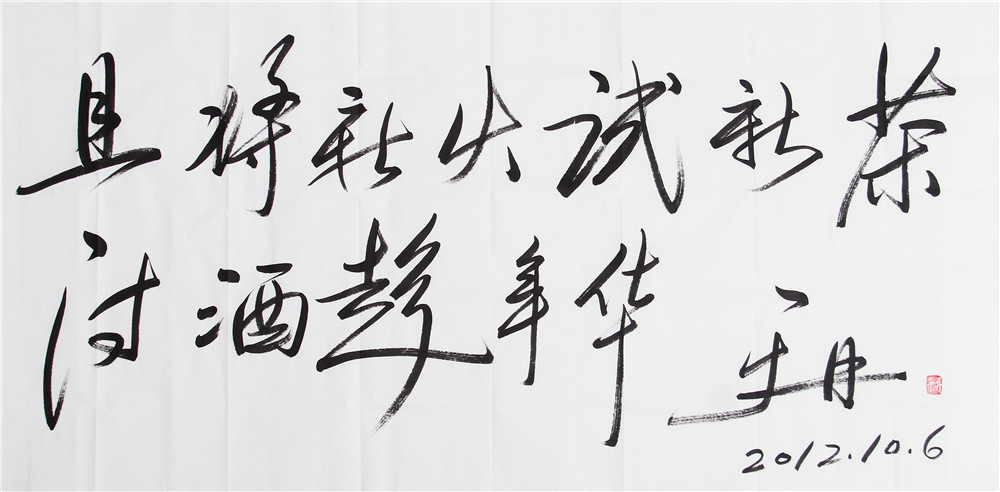 且将新火试新茶
诗酒趁年华
2012.10.6